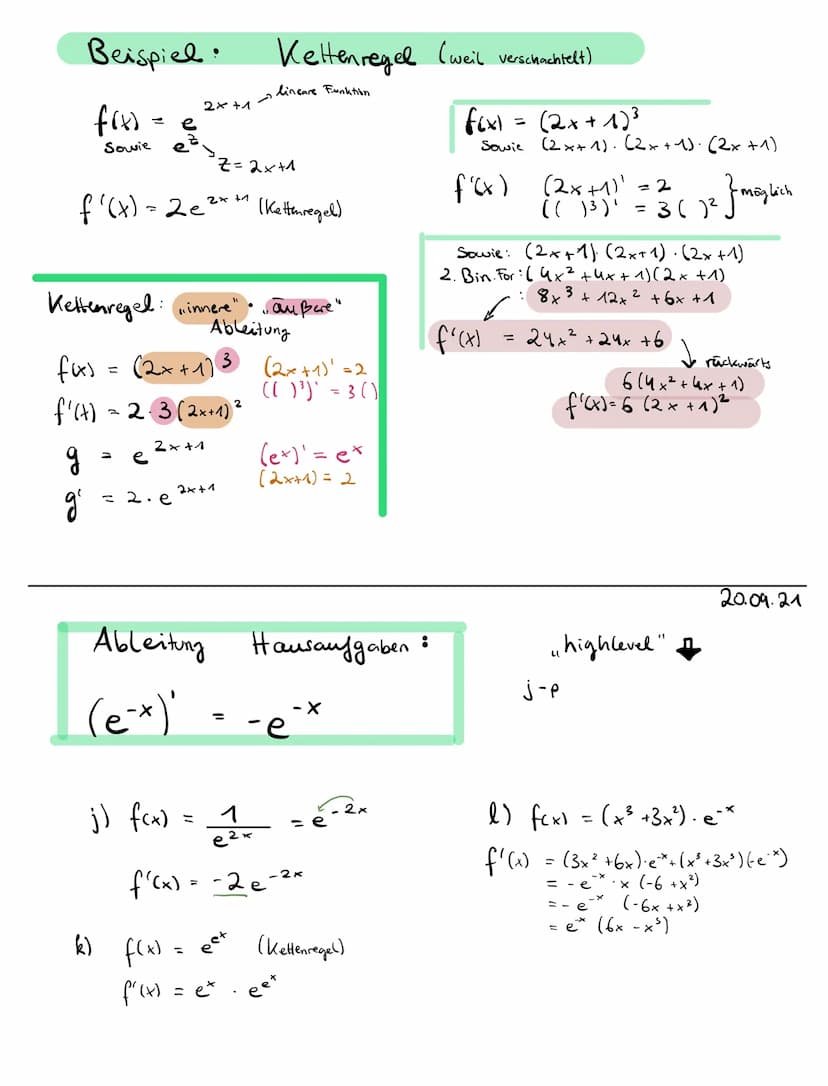 Beispiel: Kettenregel (weil verschachtelt)
f(x) = e^{2x+1} → lineare Funktion
sowie e^z
z = 2x+1
f'(x) = 2e^{2x+1} (Kettenregel)
f(x) = (2x+1)³
sowie (2x+1)·(2x+1)·(2x+1)
f'(x) (2x+1)' = 2
(( )³)' = 3( )² } möglich
Sowie: (2x+1)·(2x+1)·(2x+1)
2. Bin. For: (4x²+4x+1)(2x+1)
: 8x³ + 12x² + 6x + 1
f'(x) = 24x² + 24x + 6
rückwärts
6(4x²+4x+1)
f'(x) = 6(2x+1)²
Kettenregel: „innere" · „äußere"
Ableitung
f(x) = (2x+1)³ (2x+1)' = 2
(( )³)' = 3()
f'(x) = 2·3(2x+1)²
g = e^{2x+1} (e^x)' = e^x
(2x+1) = 2
g' = 2·e^{2x+1}
20.09.21
Ableitung Hausaufgaben:
(e^{-x})' = -e^{-x}
„highlevel" ⬇
j-p
j) f(x) = 1/e^{2x} = e^{-2x}
f'(x) = -2e^{-2x}
k) f(x) = e^{e^x} (Kettenregel)
f'(x) = e^x · e^{e^x}
l) f(x) = (x³+3x²)·e^{-x}
f'(x) = (3x²+6x)·e^{-x}+(x³+3x³)(-e^{-x})
= -e^{-x}·x(-6+x²)
= -e^{-x} (-6x+x³)
= e^x (6x-x³)